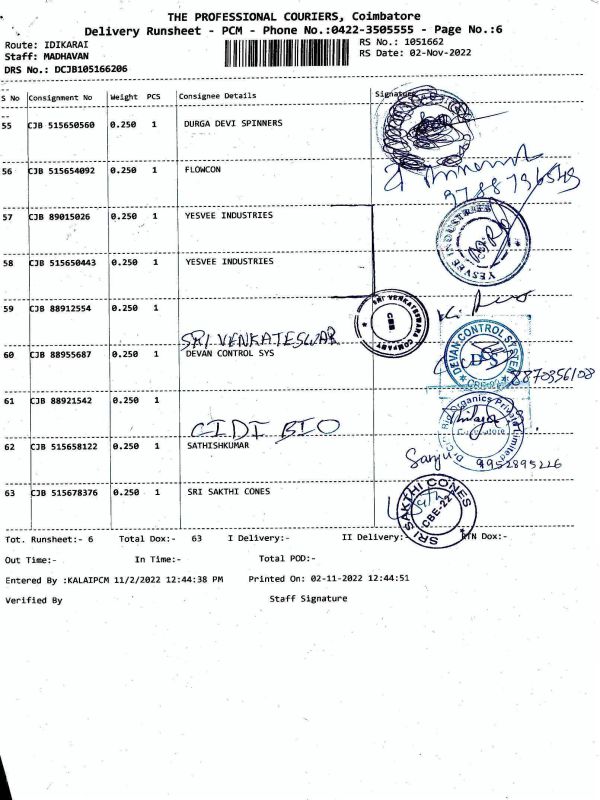 THE PROFESSIONAL COURIERS, Coimbatore
Delivery Runsheet - PCM - Phone No.:0422-3505555 - Page No.:6
Route: IDIKARAI
RS No.: 1051662
Staff: MADHAVAN
RS Date: 02-Nov-2022
DRS No.: DCJB105166206
S No Consignment No Weight PCS Consignee Details Signature
55 CJB 515650560 0.250 1 DURGA DEVI SPINNERS
56 CJB 515654092 0.250 1 FLOWCON
9788796549
57 CJB 89015026 0.250 1 YESVEE INDUSTRIES
YESVEE INDUSTRIES
58 CJB 515650443 0.250 1 YESVEE INDUSTRIES
59 CJB 88912554 0.250 1
SRI VENKATESWAR
SRI VENKATESWARA COMPANY
CBE
60 CJB 88955687 0.250 1 DEVAN CONTROL SYS
DEVAN CONTROL SYSTEM
DCS
8870356108
61 CJB 88921542 0.250 1
CIDI BIO
Organics Private Limited
Coimbatore
62 CJB 515658122 0.250 1 SATHISHKUMAR
Sanju
9952895226
63 CJB 515678376 0.250 1 SRI SAKTHI CONES
SRI SAKTHI CONES
CBE-22
Tot. Runsheet:- 6 Total Dox:- 63 I Delivery:- II Delivery:- RTN Dox:-
Out Time:- In Time:- Total POD:-
Entered By :KALAIPCM 11/2/2022 12:44:38 PM Printed On: 02-11-2022 12:44:51
Verified By Staff Signature